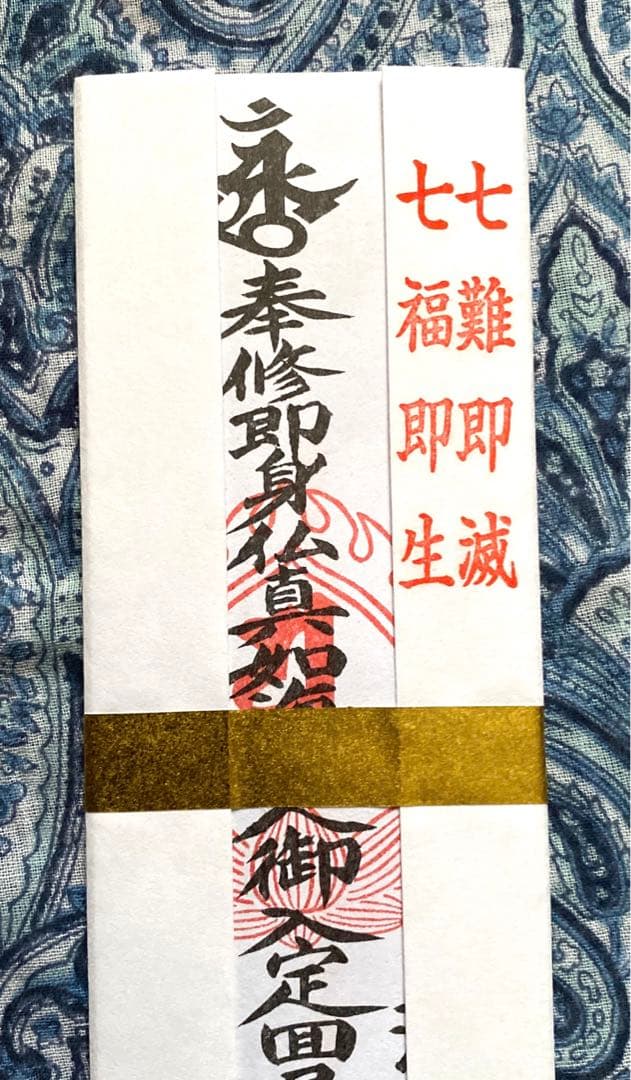 七難即滅
七福即生
奉修即身仏真如海
人御入定